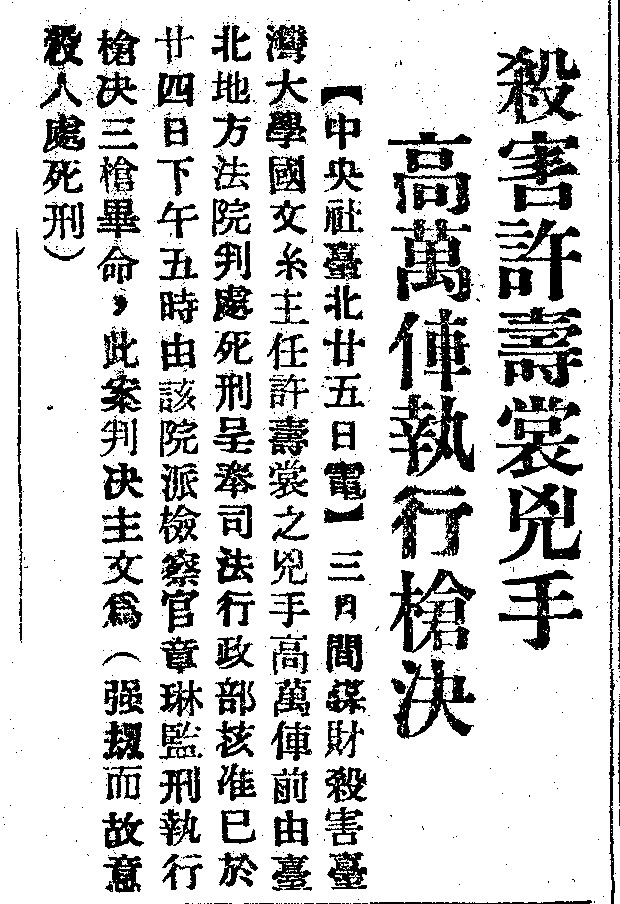 殺害許壽裳兇手
高萬俥執行槍決
【中央社臺北廿五日電】三月間謀財殺害臺
灣大學國文系主任許壽裳之兇手高萬俥前由臺
北地方法院判處死刑呈奉司法行政部核准已於
廿四日下午五時由該院派檢察官章琳監刑執行
槍决三槍畢命，此案判决主文爲（强而故意
殺人處死刑）